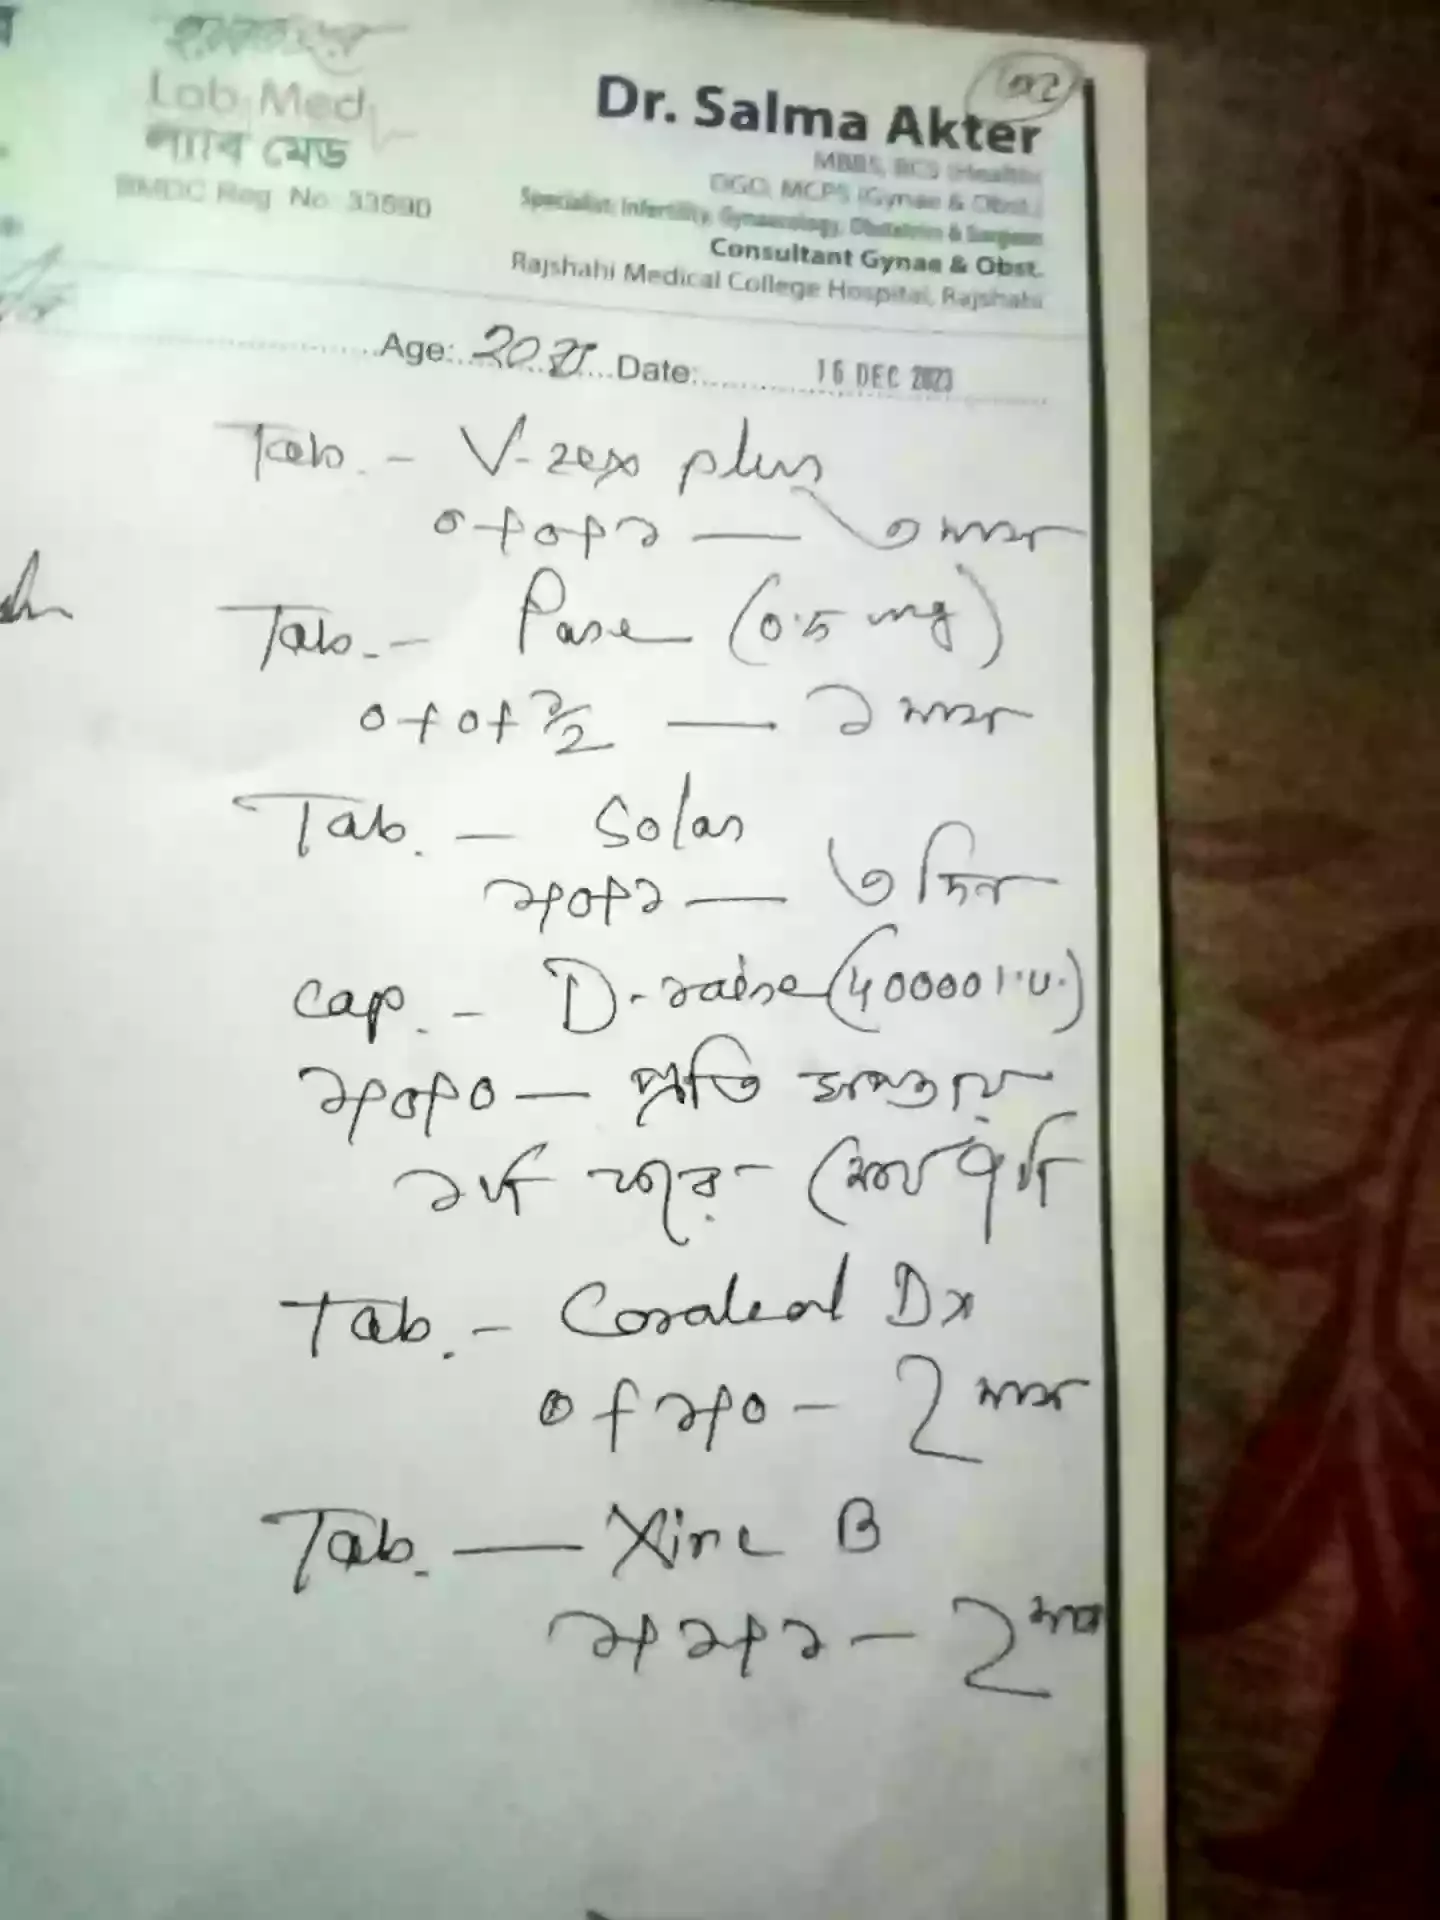 Lab Med
ল্যাব মেড
BMDC Reg. No. 33590
Dr. Salma Akter
MBBS, BCS (Health)
DGO, MCPS (Gynae & Obst.)
Specialist: Infertility, Gynaecology, Obstetrics & Surgeon
Consultant Gynae & Obst.
Rajshahi Medical College Hospital, Rajshahi
Age: 20 Date: 16 DEC 2023
Tab. - V-zex plus
০+০+১ — ৩ মাস
Tab. - Pase (0.5 mg)
০+০+১/২ — ১ মাস
Tab. — Solas
১+০+১ — ৩ দিন
Cap. - D-raise (40000 I.U.)
১+০+০ — প্রতি সপ্তাহে
১টি করে -
Tab. - Coralcal Dx
০+১+০ - 2 মাস
Tab. — Xinc B
১+১+১ - 2 মাস